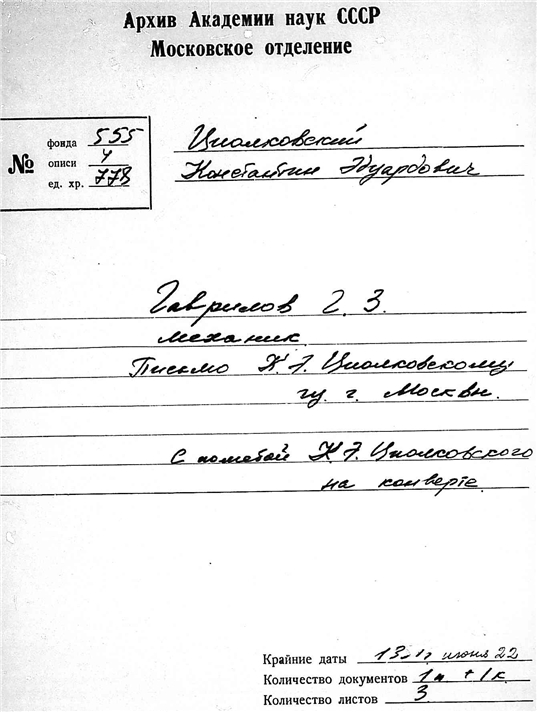 Архив Академии наук СССР
Московское отделение
№
фонда 555
описи 4
ед. хр. 778
Циолковский
Константин Эдуардович
Гаврилов Г. З.
механик
Письмо К.Э. Циолковскому
г. Москвы.
С пометой К.Э. Циолковского
на конверте
Крайние даты июня 22
Количество документов 1п + 1к.
Количество листов 3